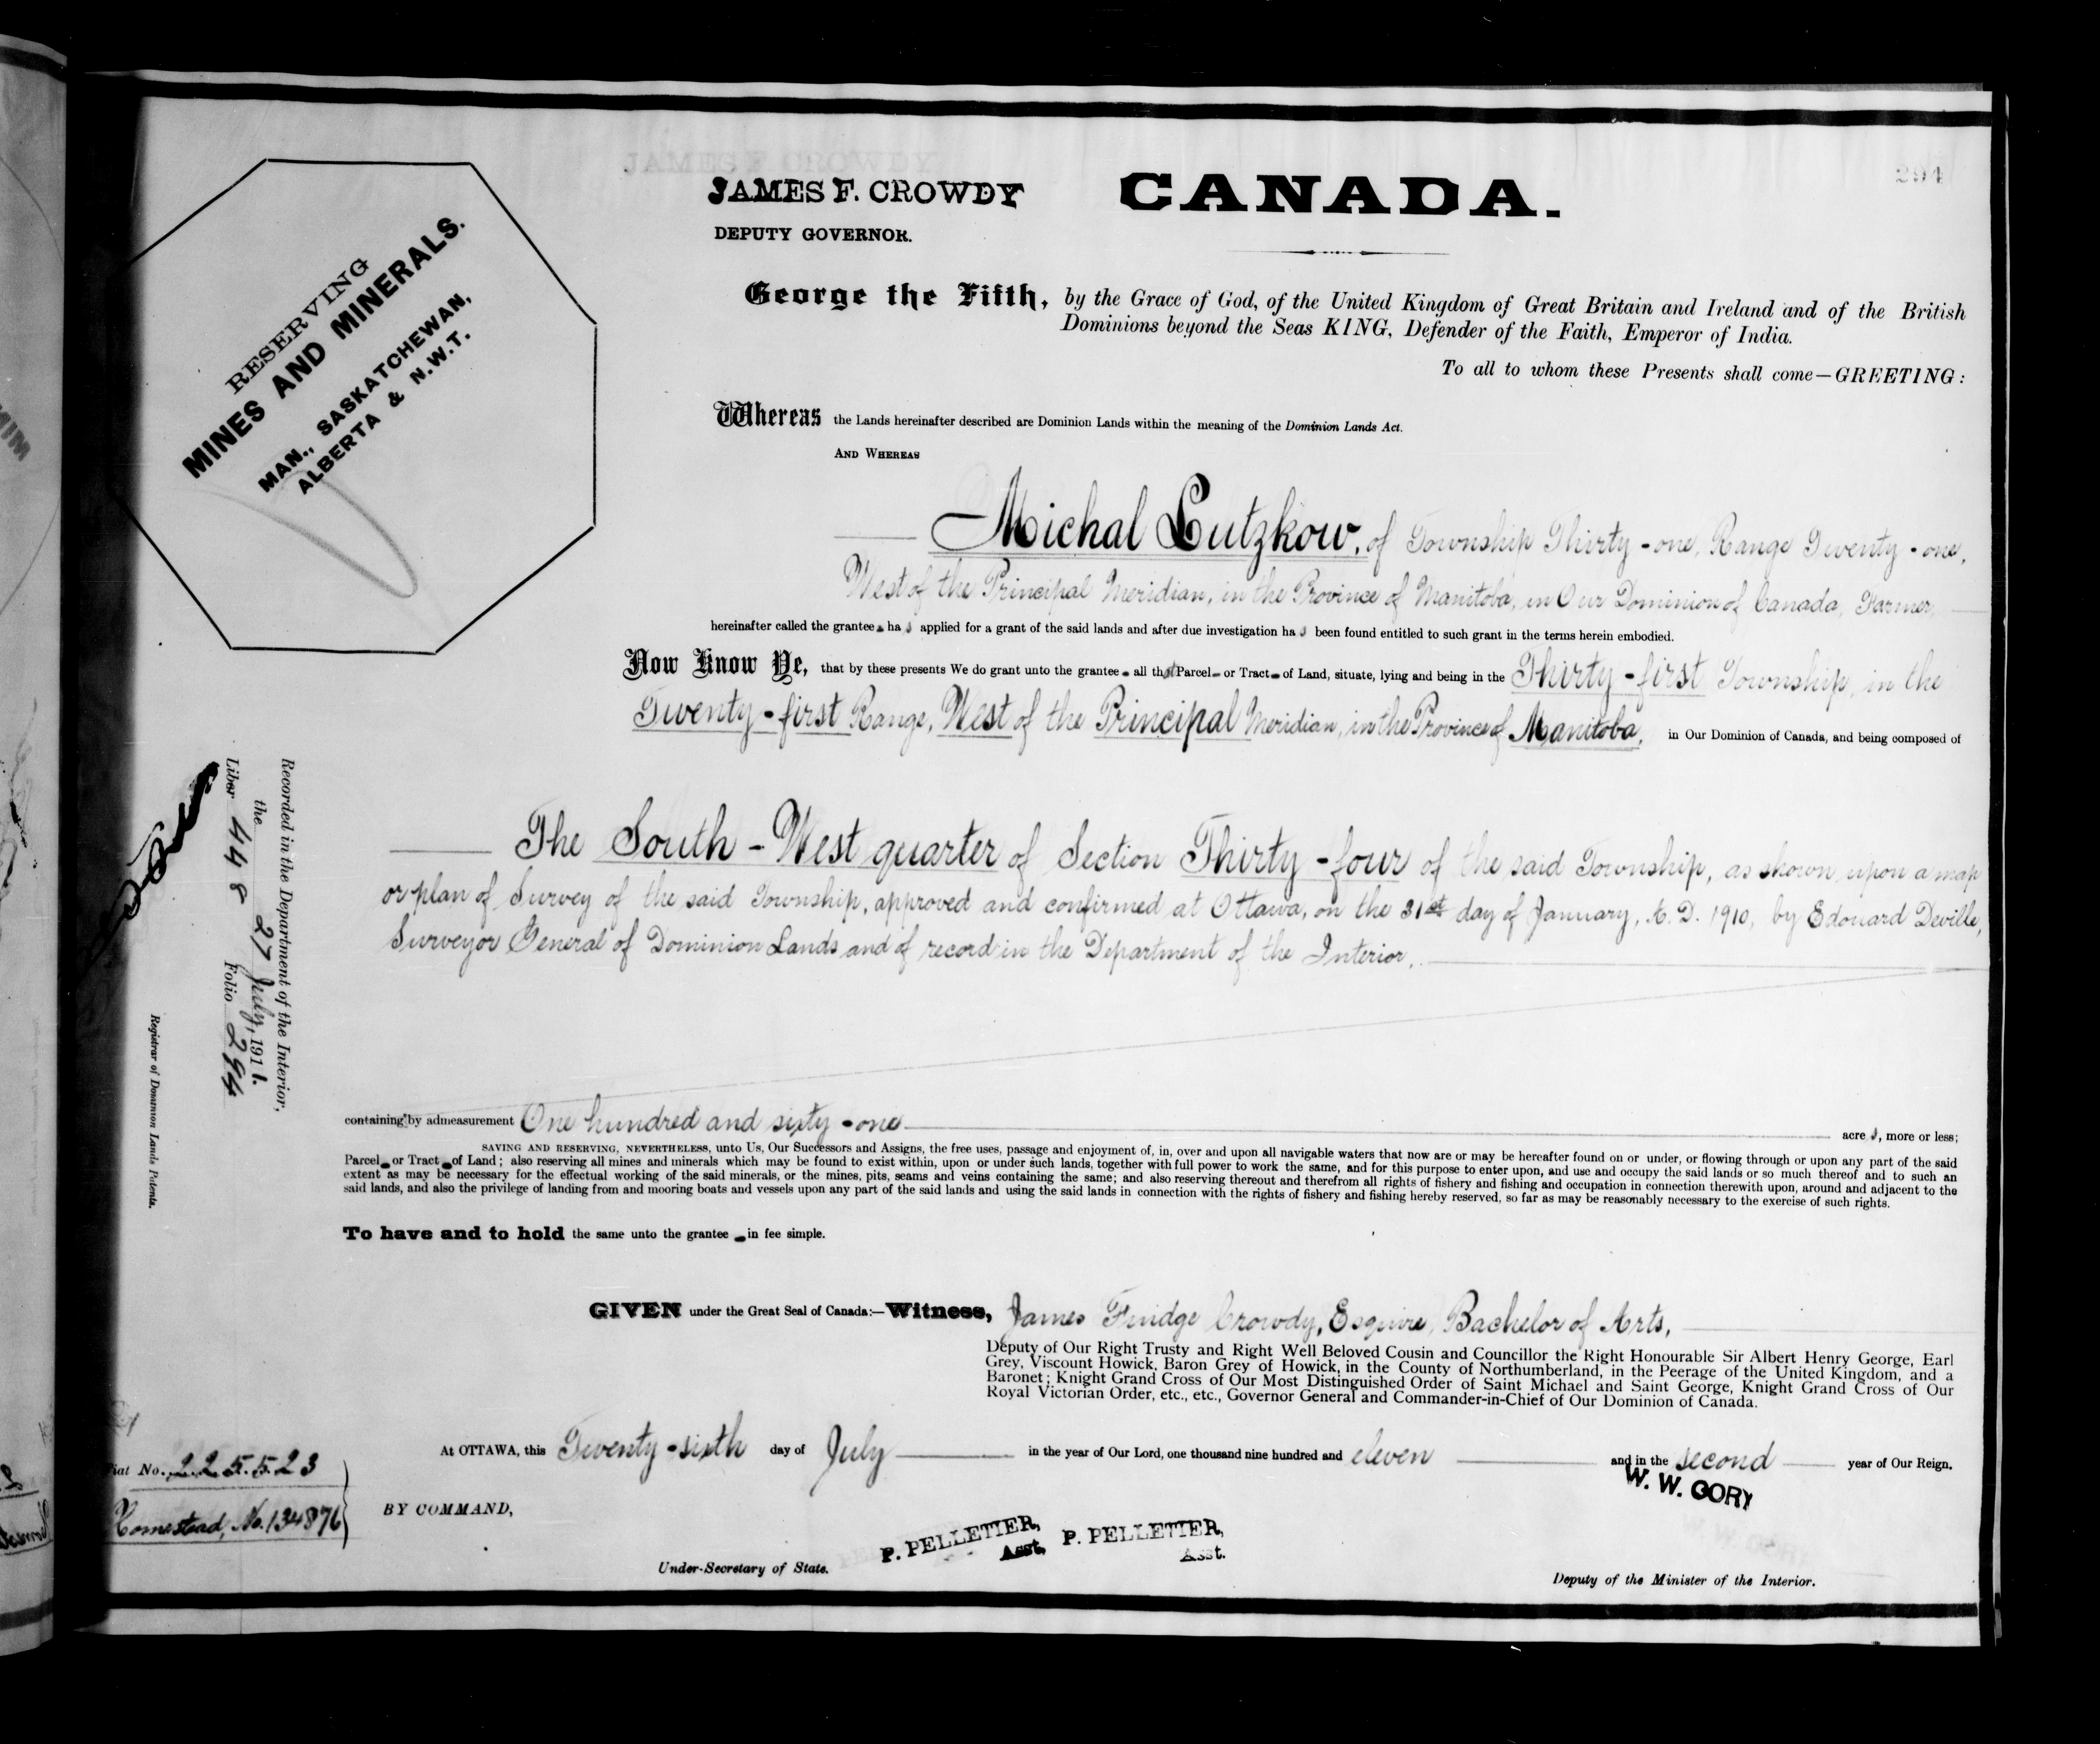 294
JAMES F. CROWDY
DEPUTY GOVERNOR.
CANADA.
RESERVING
MINES AND MINERALS.
MAN., SASKATCHEWAN,
ALBERTA & N.W.T.
George the Fifth, by the Grace of God, of the United Kingdom of Great Britain and Ireland and of the British
Dominions beyond the Seas KING, Defender of the Faith, Emperor of India.
To all to whom these Presents shall come—GREETING:
Whereas the Lands hereinafter described are Dominion Lands within the meaning of the Dominion Lands Act.
AND WHEREAS
Michal Lutzkow, of Township Thirty-one, Range Twenty-one,
West of the Principal Meridian, in the Province of Manitoba, in Our Dominion of Canada, Farmer,
hereinafter called the grantee has applied for a grant of the said lands and after due investigation has been found entitled to such grant in the terms herein embodied.
Now Know Ye, that by these presents We do grant unto the grantee all that Parcel or Tract of Land, situate, lying and being in the Thirty-first Township, in the
Twenty-first Range, West of the Principal Meridian, in the Province of Manitoba, in Our Dominion of Canada, and being composed of
The South-West quarter of Section Thirty-four of the said Township, as shown upon a map
or plan of Survey of the said Township, approved and confirmed at Ottawa, on the 31st day of January, A.D. 1910, by Edouard Deville,
Surveyor General of Dominion Lands and of record in the Department of the Interior,
containing by admeasurement One hundred and sixty-one acres, more or less;
SAVING AND RESERVING, NEVERTHELESS, unto Us, Our Successors and Assigns, the free uses, passage and enjoyment of, in, over and upon all navigable waters that now are or may be hereafter found on or under, or flowing through or upon any part of the said
Parcel or Tract of Land; also reserving all mines and minerals which may be found to exist within, upon or under such lands, together with full power to work the same, and for this purpose to enter upon, and use and occupy the said lands or so much thereof and to such an
extent as may be necessary for the effectual working of the said minerals, or the mines, pits, seams and veins containing the same; and also reserving thereout and therefrom all rights of fishery and fishing and occupation in connection therewith upon, around and adjacent to the
said lands, and also the privilege of landing from and mooring boats and vessels upon any part of the said lands and using the said lands in connection with the rights of fishery and fishing hereby reserved, so far as may be reasonably necessary to the exercise of such rights.
To have and to hold the same unto the grantee in fee simple.
GIVEN under the Great Seal of Canada:—Witness, James Fundge Crowdy, Esquire, Bachelor of Arts,
Deputy of Our Right Trusty and Right Well Beloved Cousin and Councillor the Right Honourable Sir Albert Henry George, Earl
Grey, Viscount Howick, Baron Grey of Howick, in the County of Northumberland, in the Peerage of the United Kingdom, and a
Baronet; Knight Grand Cross of Our Most Distinguished Order of Saint Michael and Saint George, Knight Grand Cross of Our
Royal Victorian Order, etc., etc., Governor General and Commander-in-Chief of Our Dominion of Canada.
At OTTAWA, this Twenty-sixth day of July in the year of Our Lord, one thousand nine hundred and eleven and in the second year of Our Reign.
BY COMMAND,
W. W. CORY
P. PELLETIER,
Asst.
P. PELLETIER,
Asst.
Under-Secretary of State.
Deputy of the Minister of the Interior.
Recorded in the Department of the Interior,
the 27 July, 1911.
Liber 448 Folio 294
Registrar of Dominion Lands Patents.
Fiat No. 225523
Homestead, No. 134876